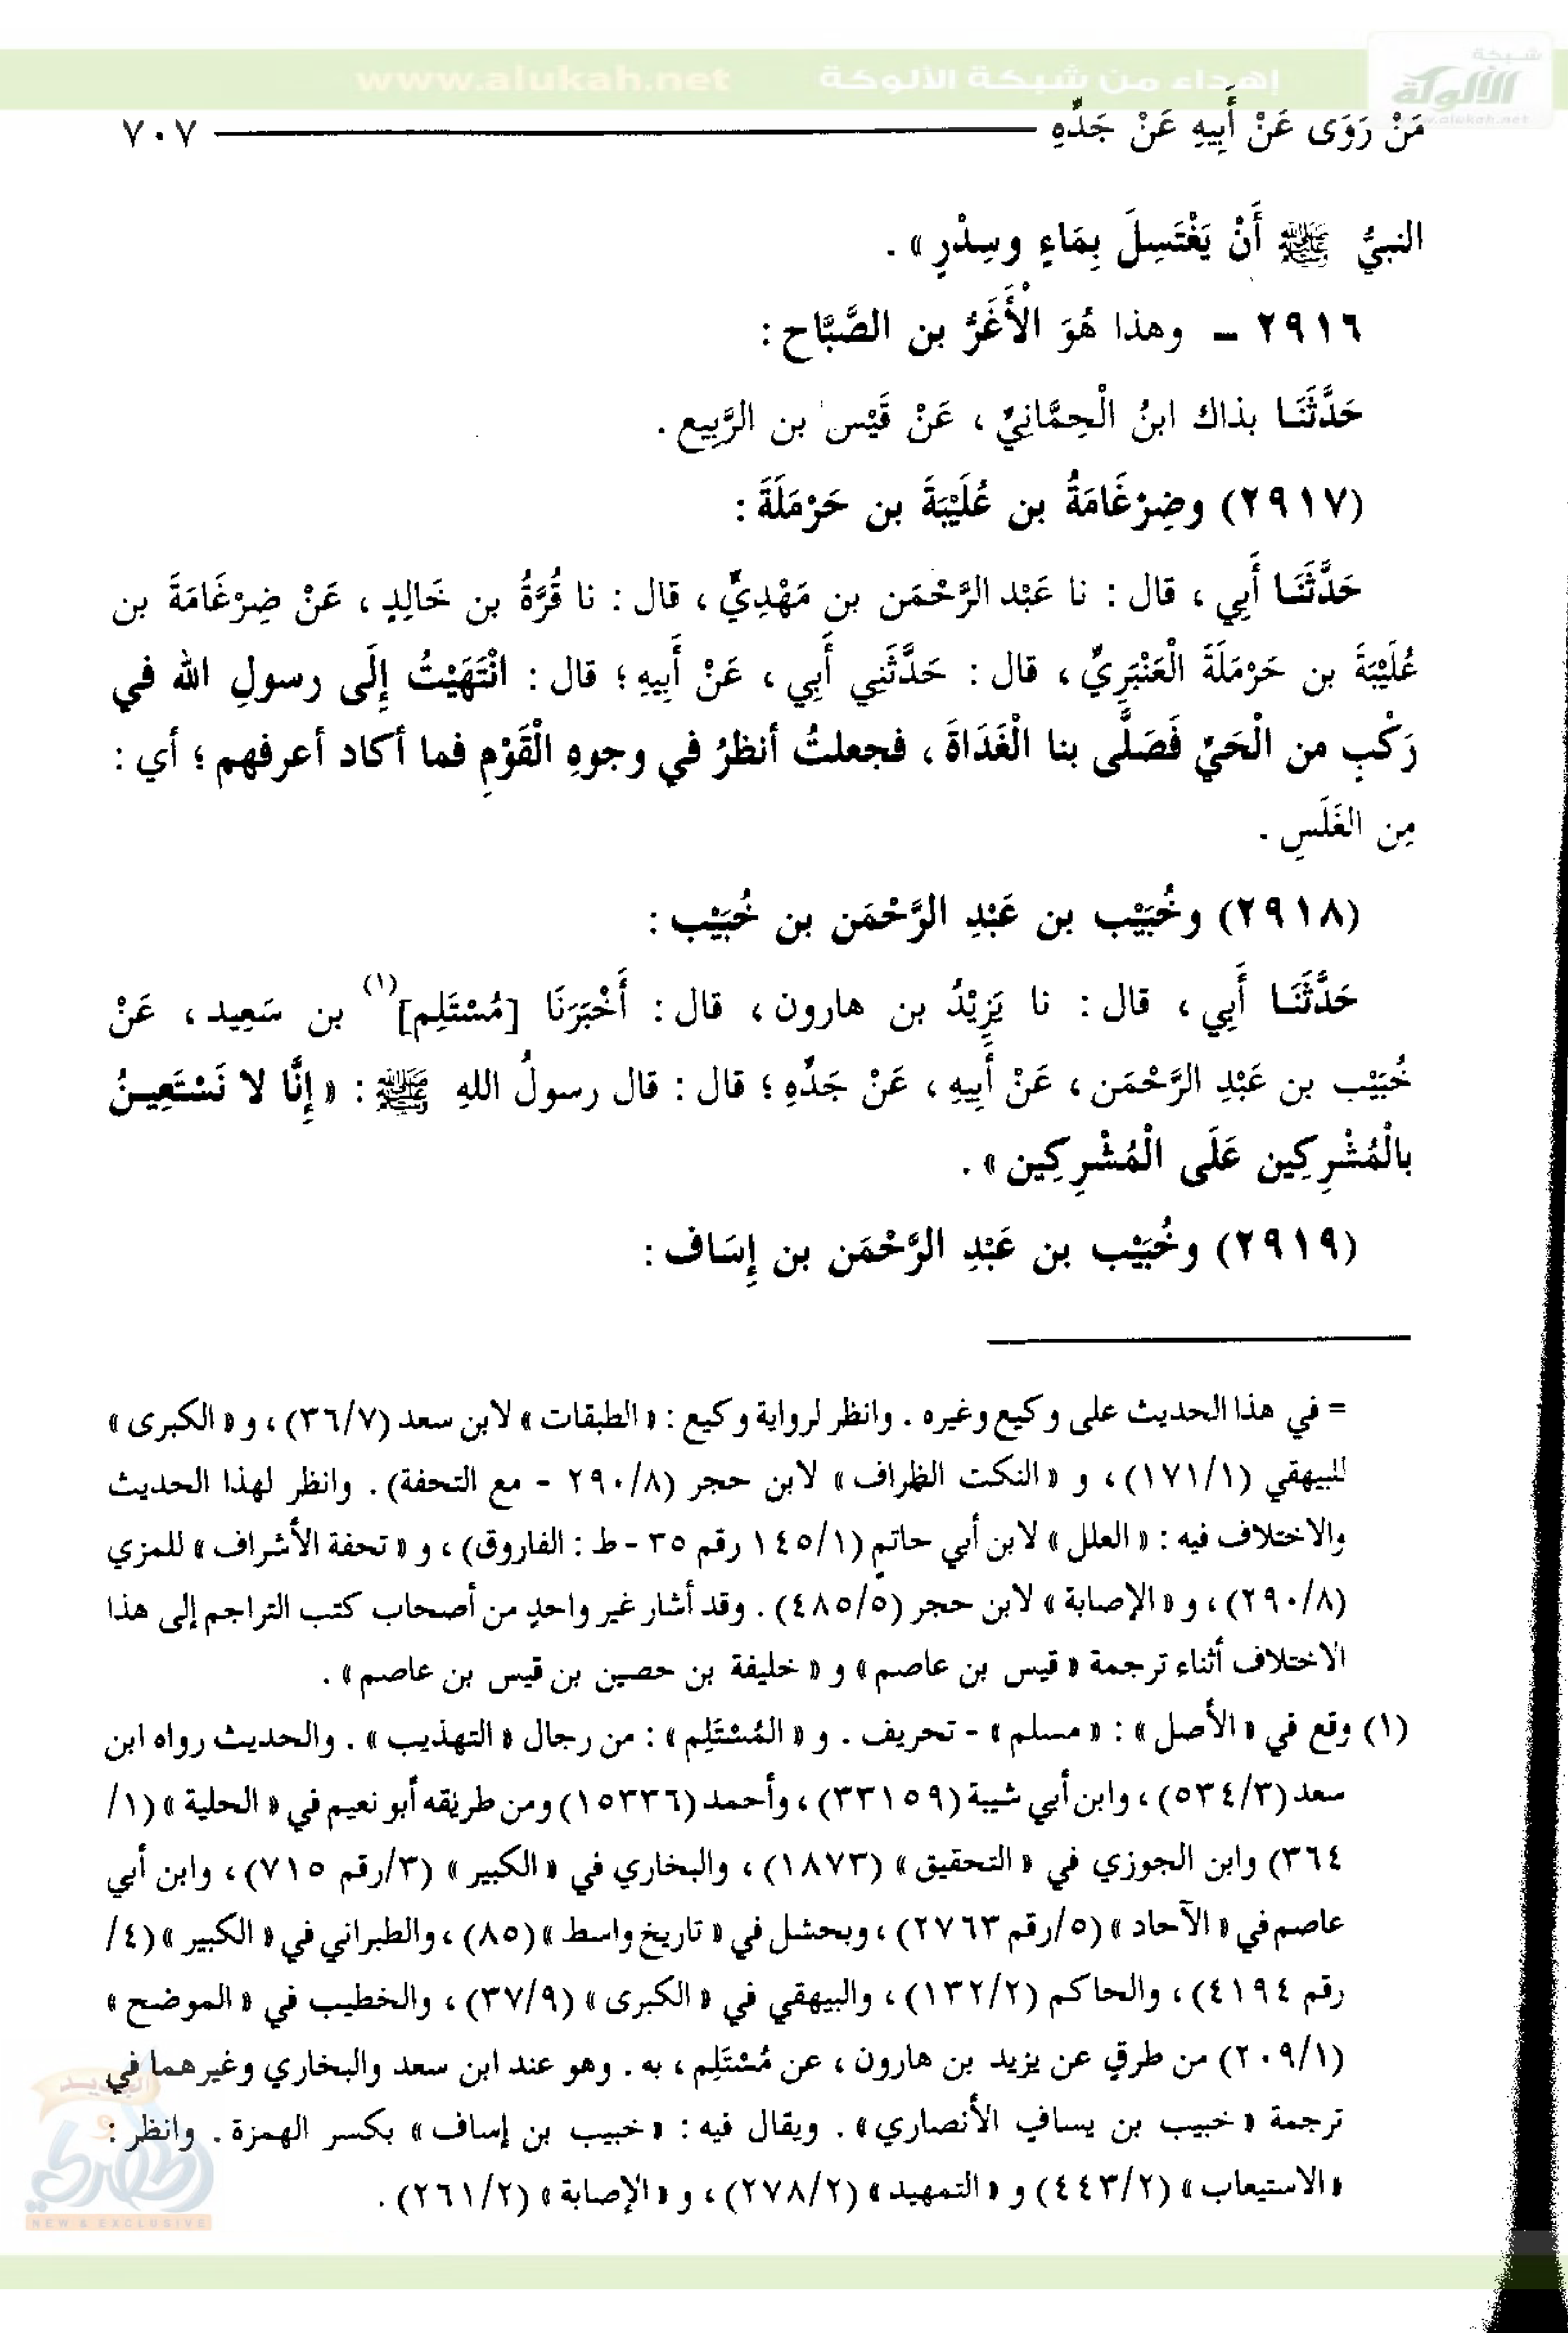 www.alukah.net إهداء من شبكة الألوكة شبكة الألوكة
www.alukah.net
مَنْ رَوَى عَنْ أَبِيهِ عَنْ جَدِّهِ ٧٠٧
النبيُّ ﷺ أَنْ يَغْتَسِلَ بِمَاءٍ وسِدْرٍ» .
٢٩١٦ – وهذا هُوَ الْأَغَرُّ بن الصَّبَّاح :
حَدَّثَنَا بذاك ابنُ الْحِمَّانِيِّ ، عَنْ قَيْس بن الرَّبِيع .
(٢٩١٧) وضِرْغَامَةُ بن عُلَيْبَةَ بن حَرْمَلَةَ :
حَدَّثَنَا أَبِي ، قال : نا عَبْد الرَّحْمَن بن مَهْدِيٍّ ، قال : نا قُرَّةُ بن خَالِدٍ ، عَنْ ضِرْغَامَةَ بن
عُلَيْبَةَ بن حَرْمَلَةَ الْعَنْبَرِيِّ ، قال : حَدَّثَنِي أَبِي ، عَنْ أَبِيهِ ؛ قال : انْتَهَيْتُ إِلَى رسولِ الله في
رَكْبٍ من الْحَيِّ فَصَلَّى بنا الْغَدَاةَ ، فجعلتُ أنظرُ في وجوهِ الْقَوْمِ فما أكاد أعرفهم ؛ أي :
مِن الغَلَسِ .
(٢٩١٨) وخُبَيْب بن عَبْدِ الرَّحْمَن بن خُبَيْب :
حَدَّثَنَا أَبِي ، قال : نا يَزِيْدُ بن هارون ، قال : أَخْبَرَنَا [مُسْتَلِم](١) بن سَعِيد ، عَنْ
خُبَيْب بن عَبْدِ الرَّحْمَن ، عَنْ أَبِيهِ ، عَنْ جَدِّهِ ؛ قال : قال رسولُ اللهِ ﷺ : «إِنَّا لا نَسْتَعِينُ
بالْمُشْرِكِين عَلَى الْمُشْرِكِين» .
(٢٩١٩) وخُبَيْب بن عَبْدِ الرَّحْمَن بن إِسَاف :
= في هذا الحديث على وكيع وغيره . وانظر لرواية وكيع : «الطبقات» لابن سعد (٣٦/٧) ، و«الكبرى»
للبيهقي (١٧١/١) ، و «النكت الظراف» لابن حجر (٢٩٠/٨ - مع التحفة) . وانظر لهذا الحديث
والاختلاف فيه : «العلل» لابن أبي حاتم (١٤٥/١ رقم ٣٥ - ط : الفاروق) ، و «تحفة الأشراف» للمزي
(٢٩٠/٨) ، و «الإصابة» لابن حجر (٤٨٥/٥) . وقد أشار غير واحدٍ من أصحاب كتب التراجم إلى هذا
الاختلاف أثناء ترجمة «قيس بن عاصم» و «خليفة بن حصين بن قيس بن عاصم» .
(١) وقع في «الأصل» : «مسلم» - تحريف . و «المُسْتَلِم» : من رجال «التهذيب» . والحديث رواه ابن
سعد (٥٣٤/٣) ، وابن أبي شيبة (٣٣١٥٩) ، وأحمد (١٥٣٣٦) ومن طريقه أبو نعيم في «الحلية» (١/
٣٦٤) وابن الجوزي في «التحقيق» (١٨٧٣) ، والبخاري في «الكبير» (٣/رقم ٧١٥) ، وابن أبي
عاصم في «الآحاد» (٥/رقم ٢٧٦٣) ، وبحشل في «تاريخ واسط» (٨٥) ، والطبراني في «الكبير» (٤/
رقم ٤١٩٤) ، والحاكم (١٣٢/٢) ، والبيهقي في «الكبرى» (٣٧/٩) ، والخطيب في «الموضح»
(٢٠٩/١) من طرقٍ عن يزيد بن هارون ، عن مُسْتَلِم ، به . وهو عند ابن سعد والبخاري وغيرهما في
ترجمة «خبيب بن يسافٍ الأنصاري» . ويقال فيه : «خبيب بن إساف» بكسر الهمزة . وانظر :
«الاستيعاب» (٤٤٣/٢) و «التمهيد» (٢٧٨/٢) ، و «الإصابة» (٢٦١/٢) .
NEW & EXCLUSIVE